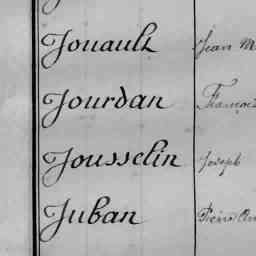 Jouault Jean M
Jourdan Franço
Jousselin Joseph
Juban Pierre